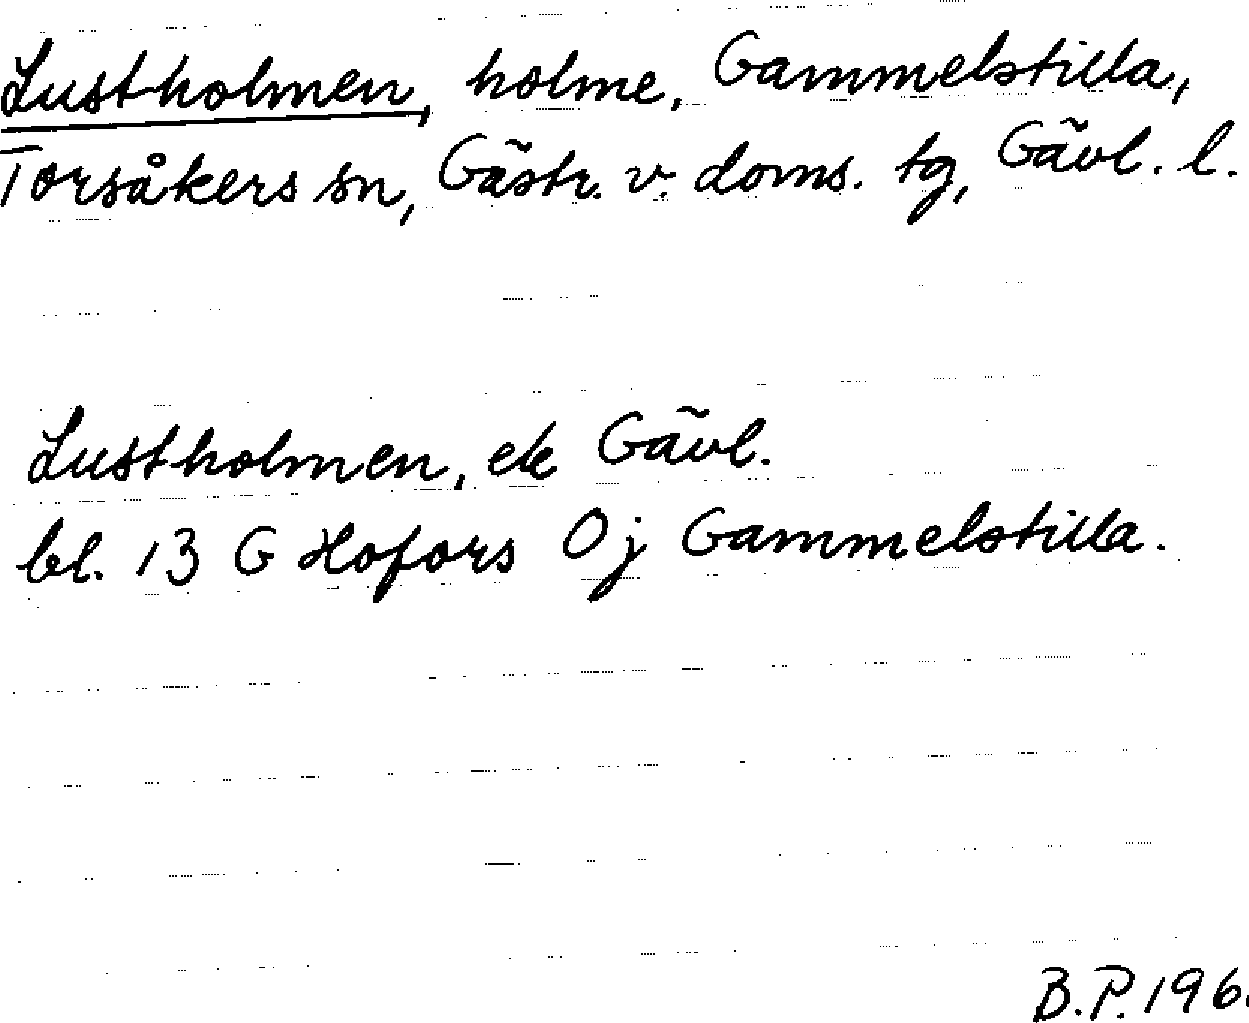 Lustholmen, holme, Gammelstilla,
Torsåkers sn, Gästr. v. doms. tg, Gävl. l.
Lustholmen, ek Gävl.
bl. 13 G Hofors Ö j Gammelstilla.
B.P. 196.